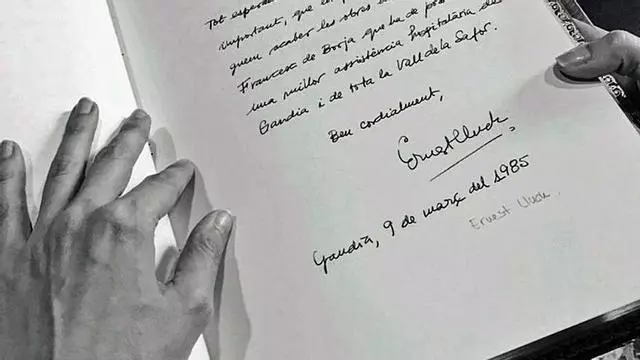 Tot esperant
important, que
quem acabar les obres
Francesc de Borja que ha de
una millor assistència hospitalària de
Gandia i de tota la Vall de la Safor.
Ben cordialment,
Ernest Lluch
Gandia, 9 de març del 1985
Ernest Lluch